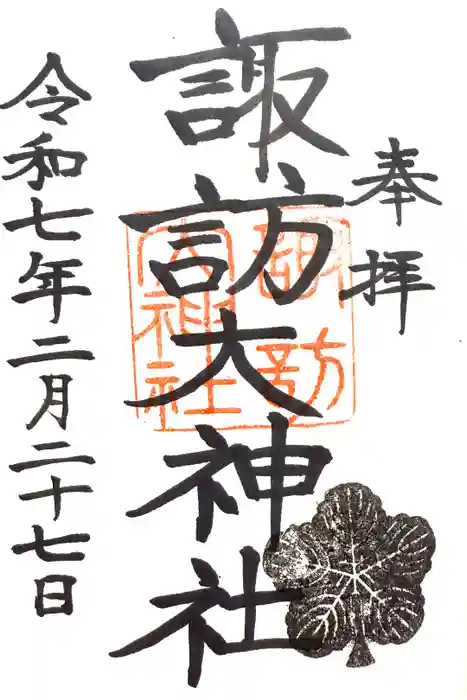 奉拝
諏訪大神社
諏訪大神社
令和七年二月二十七日